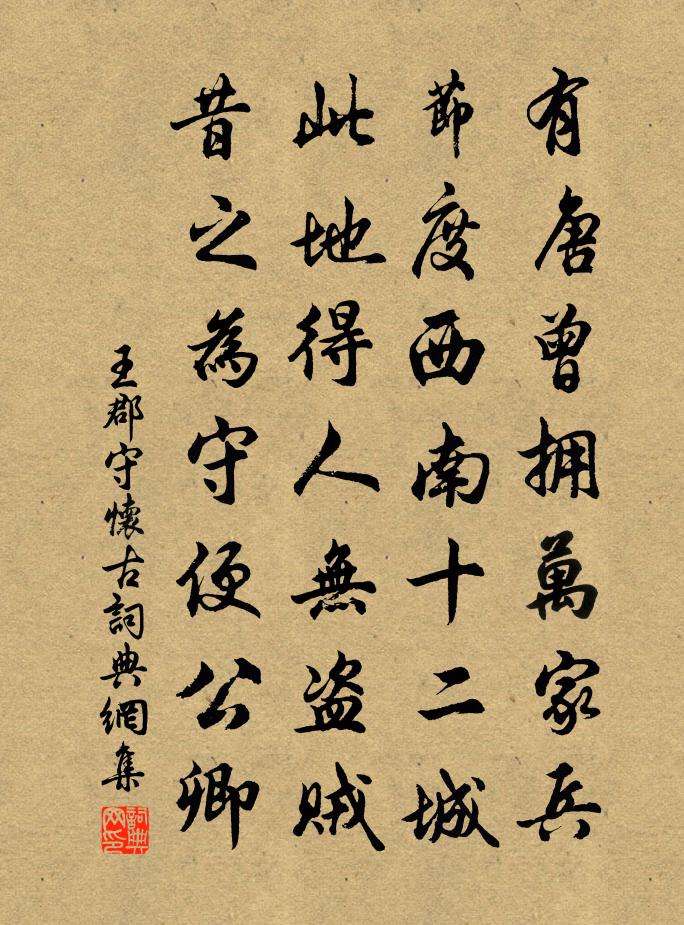 有唐曾拥萬家兵
節度西南十二城
此地得人無盗賊
昔之為守便公卿
王郡守懷古詞典網集
詞典网印